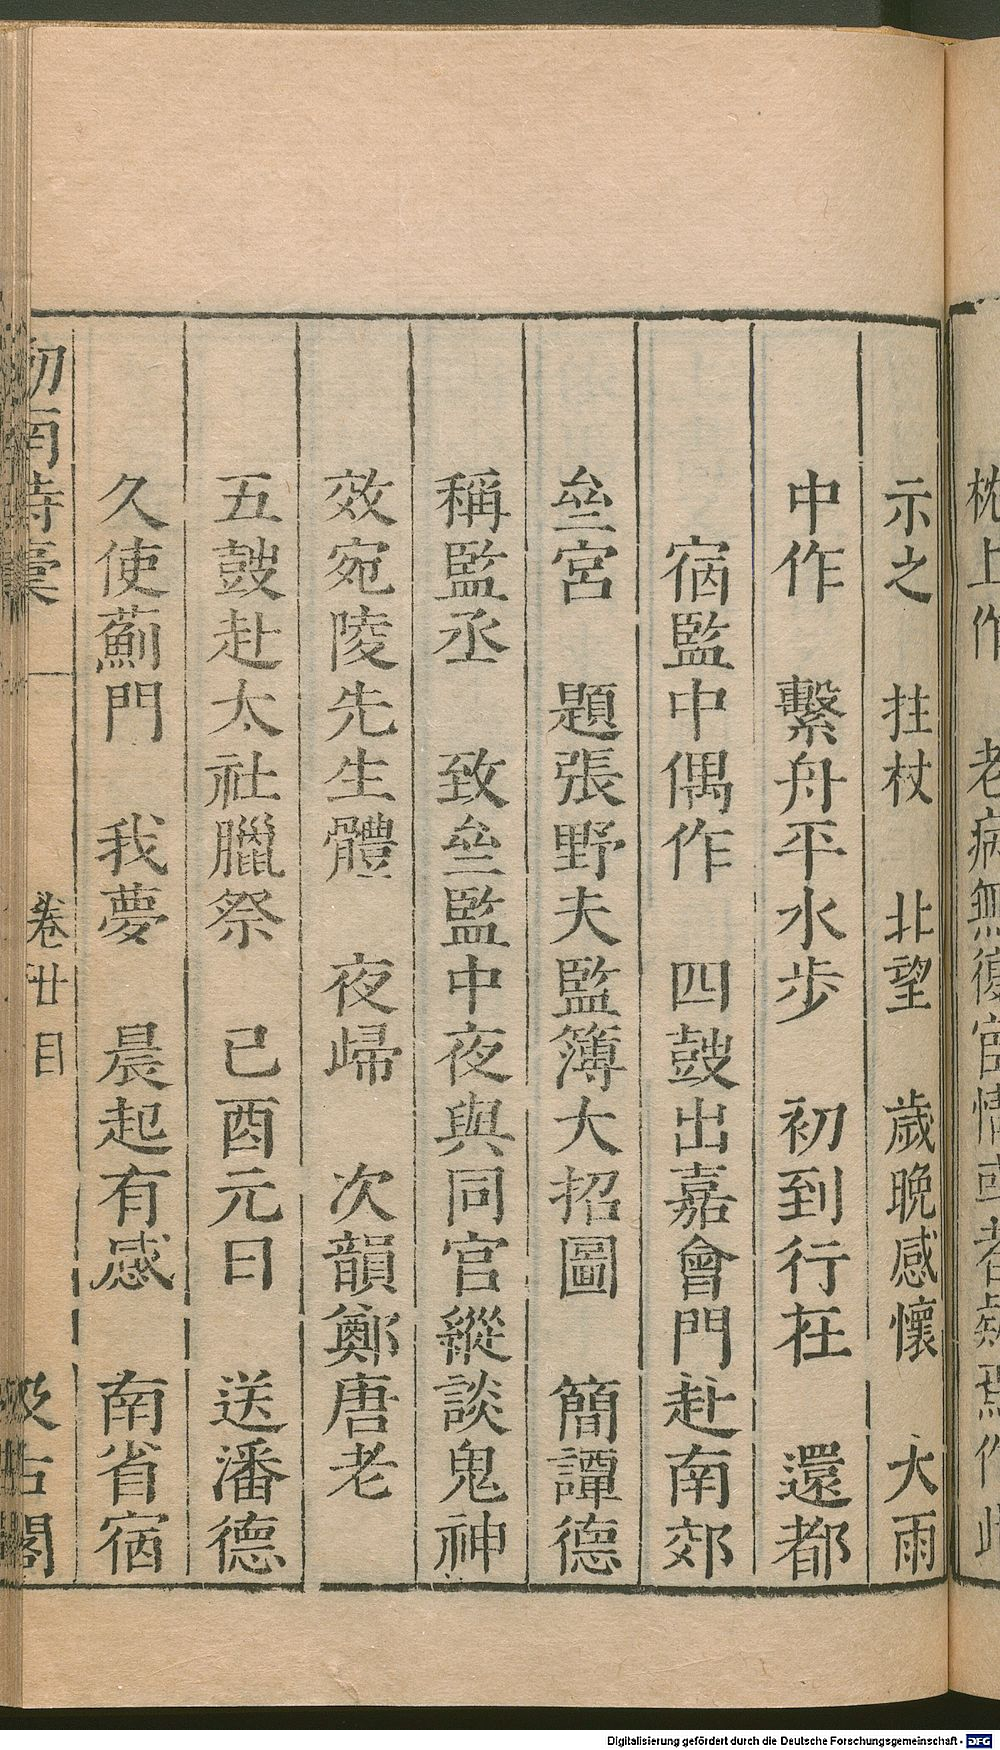 枕上作　老病無復宦情或者疑焉作此
示之　拄杖　北望　歲晚感懷　大雨
中作　繫舟平水步　初到行在　還都
宿監中偶作　四鼓出嘉會門赴南郊
壘宮　題張野夫監簿大招圖　簡譚德
稱監丞　致壘監中夜與同官縱談鬼神
效宛陵先生體　夜歸　次韻鄭唐老
五鼓赴太社臘祭　己酉元日　送潘德
久使薊門　我夢　晨起有感　南省宿
劒南詩稾　卷廿目　汲古閣
Digitalisierung gefördert durch die Deutsche Forschungsgemeinschaft - DFG